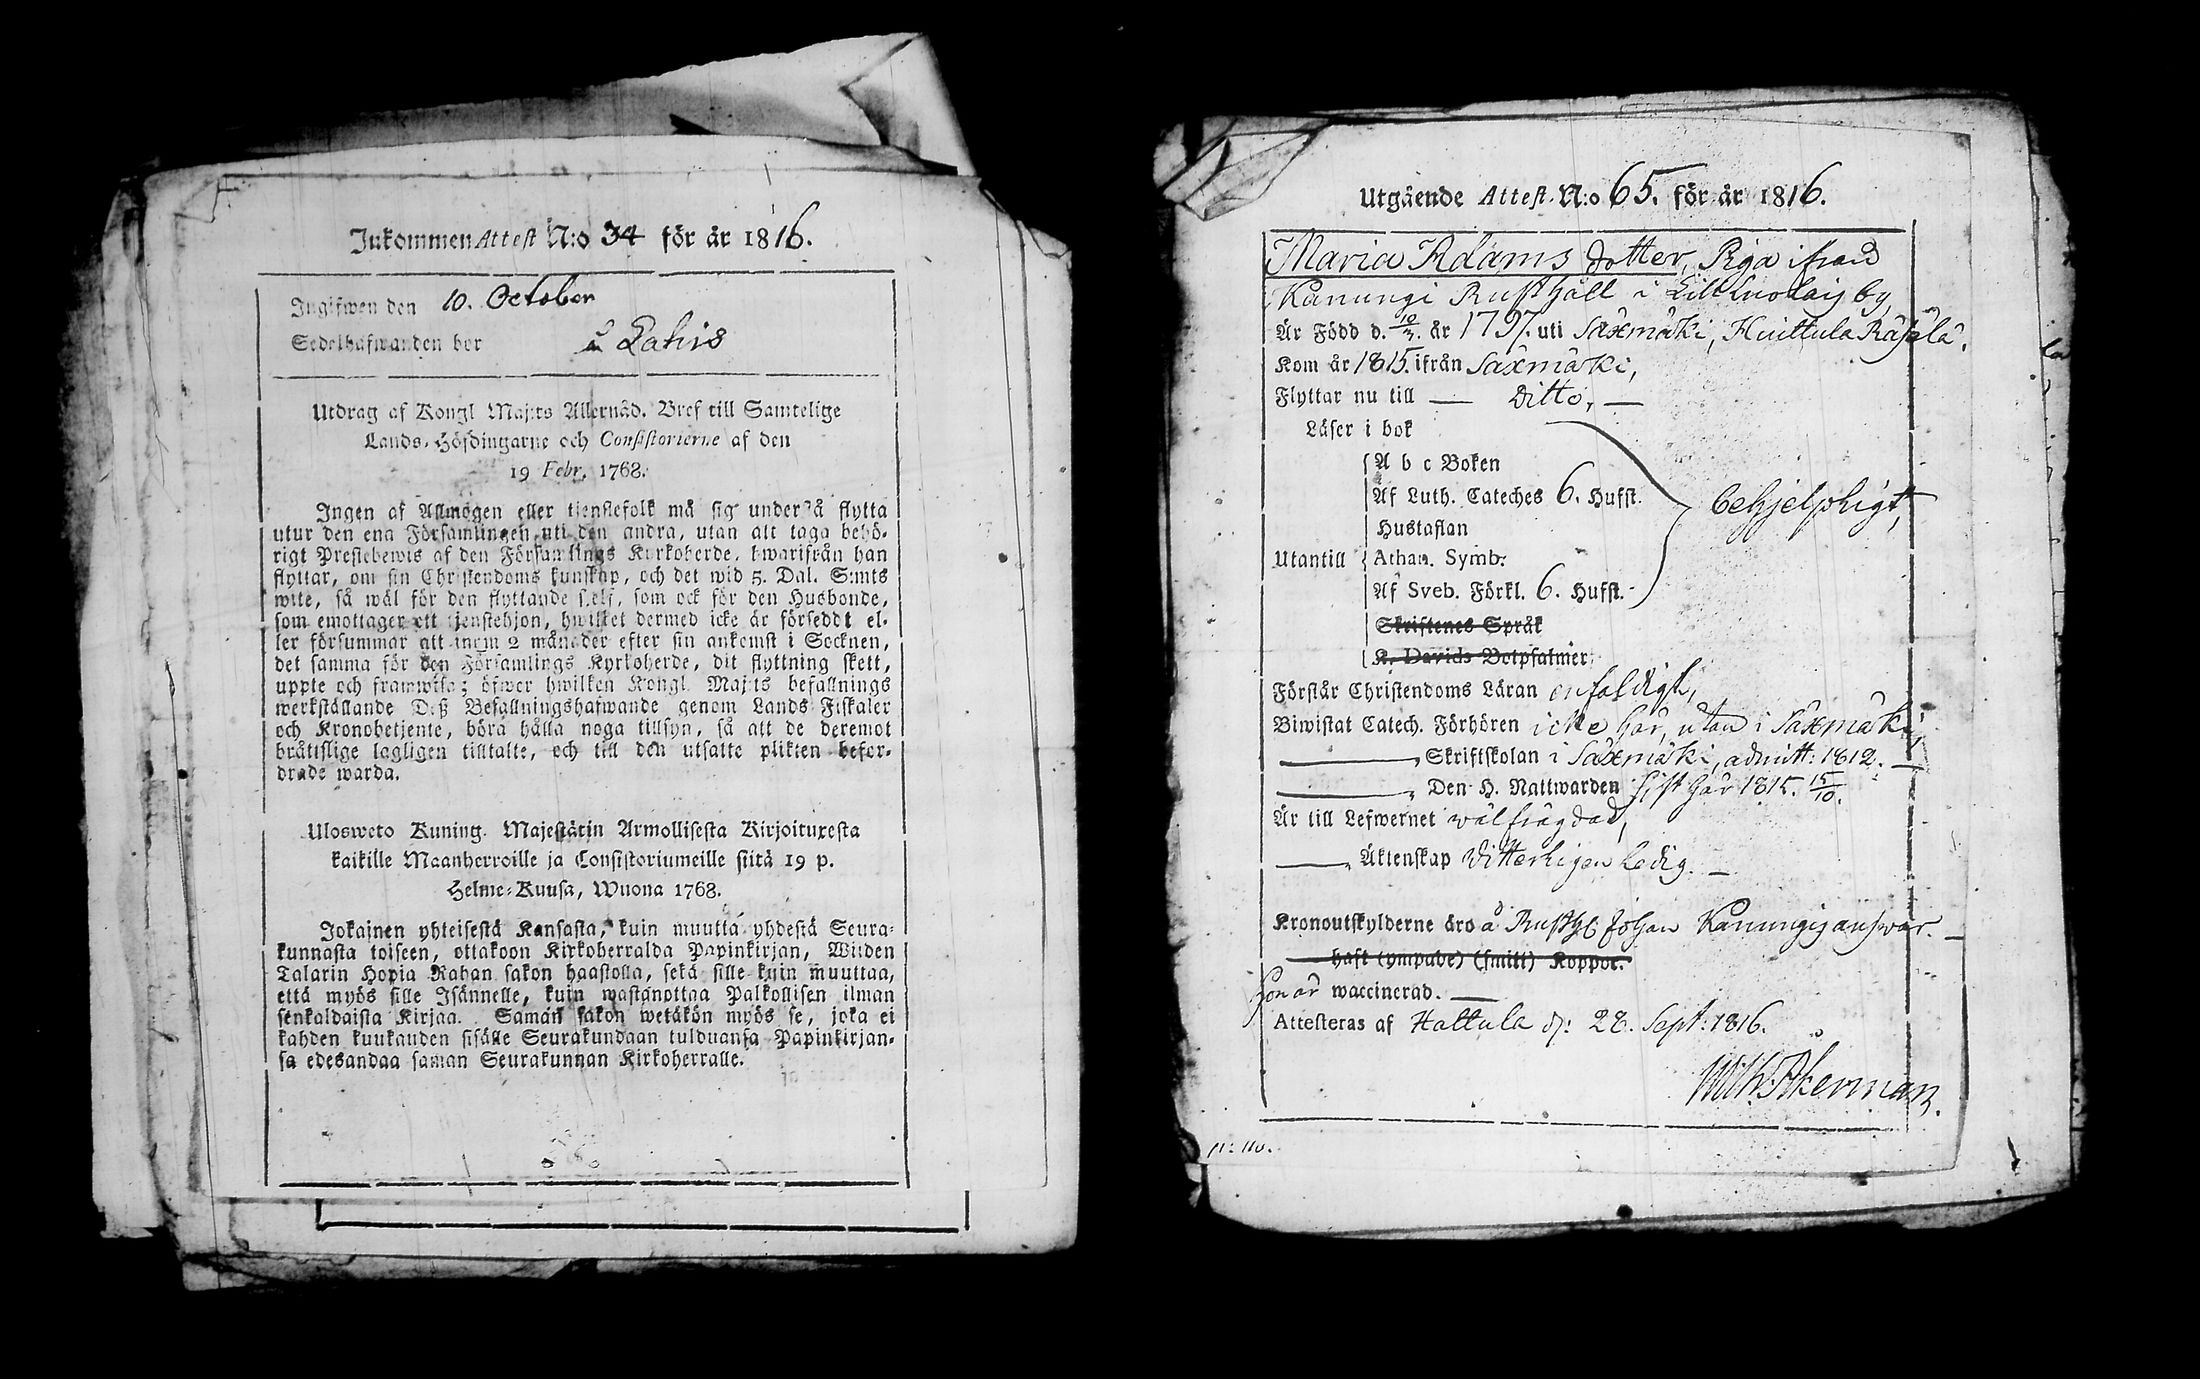 Inkommen Attest N:o 34 för år 1816.
Ingifwen den 10. October
Sedelhafwanden bor å Lahis
Utdrag af Kongl Maj:ts Allernåd. Bref till Samtelige
Lands-Höfdingarne och Consistorierne af den
19 Febr. 1768.
Ingen af Allmogen eller tjenstefolk må sig understå flytta
utur den ena Församlingen uti den andra, utan att taga behö-
rigt Prestebewis af den Församlings Kyrkoherde, hwarifrån han
flyttar, om sin Christendoms kunskap, och det wid 5. Dal. S:mts
wite, så wäl för den flyttande sjelf, som ock för den Husbonde,
som emottager ett tjenstehjon, hwilket dermed icke är förseddt el-
ler försummar att inom 2 månader efter sin ankomst i Socknen,
det samma för den Församlings Kyrkoherde, dit flyttning skett,
uppte och framwisa; öfwer hwilken Kongl. Maj:ts befallnings
werkställande Deß Befallningshafwande genom Lands Fiskaler
och Kronobetjente, böra hålla noga tillsyn, så att de deremot
bråttslige lagligen tilltalte, och till den utsatte plikten befor-
drade warda.
Ulosweto Kuning. Majestätin Armollisesta Kirjoituxesta
kaikille Maanherroille ja Consistoriumeille siitä 19 p.
Helme-Kuusa, Wuona 1768.
Jokainen yhteisestä Kansasta, kuin muuttá yhdestä Seura-
kunnasta toiseen, ottakoon Kirkoherralda Papinkirjan, Wiiden
Talarin Hopia Rahan sakon haastolla, sekä sille kuin muuttaa,
että myös sille Isännelle, kuin wastanottaa Palkollisen ilman
senkaldaista Kirjaa. Saman sakon wetäkön myös se, joka ei
kahden kuukauden sisälle Seurakundaan tulduansa Papinkirjan-
sa edesandaa saman Seurakunnan Kirkoherralle.
Utgående Attest. N:o 65. för år 1816.
Maria Adams dotter, Piga ifrån
Kanungi Rusthåll i Lill Luolais by,
Är Född d. 10/3. år 1797. uti Säxmäki, Huittula Räpälä.
Kom år 1815. ifrån Säxmäki,
Flyttar nu till — Ditto, —
Läser i bok
A b c Boken
Af Luth. Cateches 6. Hufst.
behjelpligt,
Hustaflan
Utantill Athan. Symb.
Af Sveb. Förkl. 6. Hufst.
Skriftenes Språk
K. Davids Botpsalmer
Förstår Christendoms Läran enfaldigt,
Biwistat Catech. Förhören icke här, utan i Säxmäki,
—, Skriftskolan i Säxmäki, admitt: 1812. —
—, Den H. Nattwarden sist här 1815. 15/10.
Är till Lefwernet wälfrägdad,
—, Äktenskap Witterligen Ledig. —
Kronoutskylderne äro å Rusth. Johan Kanungis answar. —
— haft (ympade) (smitt) Koppor.
hon är waccinerad. —
Attesteras af Hattula d: 28. Sept: 1816.
Wilh. Åkerman.
p: 110.